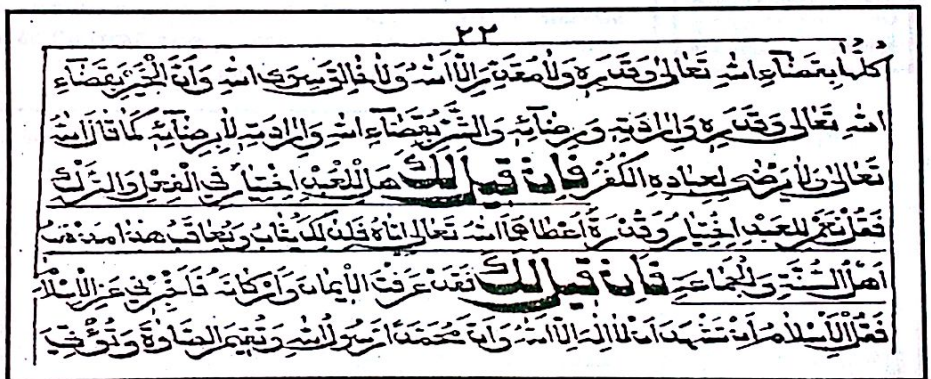 ٢٢
كُلِّهَا بِقَضَآءِ اللهِ تَعَالٰى وَقَدَرِهٖ وَلَا مُقَدِّرَ اِلَّا اللهُ وَلَا خَالِقَ سِوَى اللهِ وَاَنَّ الْخَيْرَ بِقَضَآءِ
اللهِ تَعَالٰى وَقَدَرِهٖ وَاِرَادَتِهٖ وَرِضَآئِهٖ وَالشَّرَّ بِقَضَآءِ اللهِ وَاِرَادَتِهٖ لَا بِرِضَآئِهٖ كَمَا قَالَ اللهُ
تَعَالٰى وَلَا يَرْضٰى لِعِبَادِهِ الْكُفْرَ فَاِنْ قِيلَ لَكَ هَلْ لِلْعَبْدِ اِخْتِيَارٌ فِي الْفِعْلِ وَالتَّرْكِ
فَقُلْ نَعَمْ لِلْعَبْدِ اِخْتِيَارٌ وَقُدْرَةٌ اَعْطَاهُمَا اللهُ تَعَالٰى اِيَّاهُ فَلِذٰلِكَ يُثَابُ وَيُعَاقَبُ هٰذَا مَذْهَبُ
اَهْلِ السُّنَّةِ وَالْجَمَاعَةِ فَاِنْ قِيلَ لَكَ فَقَدْ عَرَفْتَ الْاِيمَانَ وَاَرْكَانَهُ فَاَخْبِرْنِي عَنِ الْاِسْلَامِ
فَقُلِ الْاِسْلَامُ اَنْ تَشْهَدَ اَنْ لَا اِلٰهَ اِلَّا اللهُ وَاَنَّ مُحَمَّدًا رَسُولُ اللهِ وَتُقِيمَ الصَّلٰوةَ وَتُؤْتِيَ